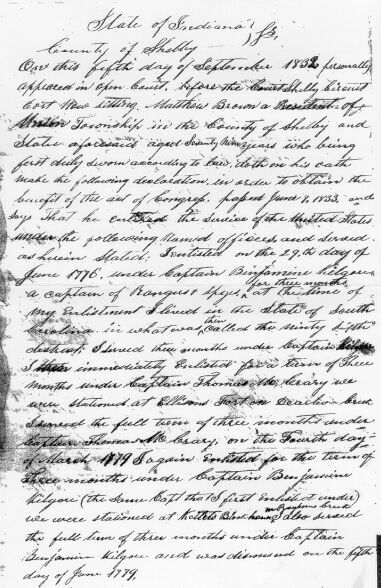 State of Indiana } SS,
County of Shelby
On this fifth day of September 1832, personally
appeared in open Court, before the Court Shelby Circuit
Cort Now sitting, Matthew Brown a Resident of
Union Township in the County of Shelby and
State aforesaid aged Seventy Nine years who being
first duly sworn according to law, doth on his oath
make the following declaration, in order to obtain the
benefit of the act of Congress, passed June 7, 1833, and
says that he entered the service of the United States
under the following named officers, and served
as herein stated; I entisted on the 29,th day of
June 1776, under Captain Benjamine Kilgore
for three months,
a captain of Rangers & Spyes, at the time of
my Enlistment I lived in the State of South
then
Carolina in what was, called the ninty sixth
destrict, I served three months under Captain Kilgore
I then immediately Enlisted for a term of Three
months under Captain Thomas Mc Crary, we
were stationed at Ellisons Fort on Creek
I served the full term of three months under
Captin Thomas Mc Crary, on the Fourth day
of March 1779 I again Enlisted for the term of
three months under Captain Benjamine
Kilgore (the same Capt that I first Enlisted under)
on Creek
we were stationed at Block house, I also served
the full term of three months under Captain
Benjamin Kilgore and was dismissed on the fifth
day of June 1779,